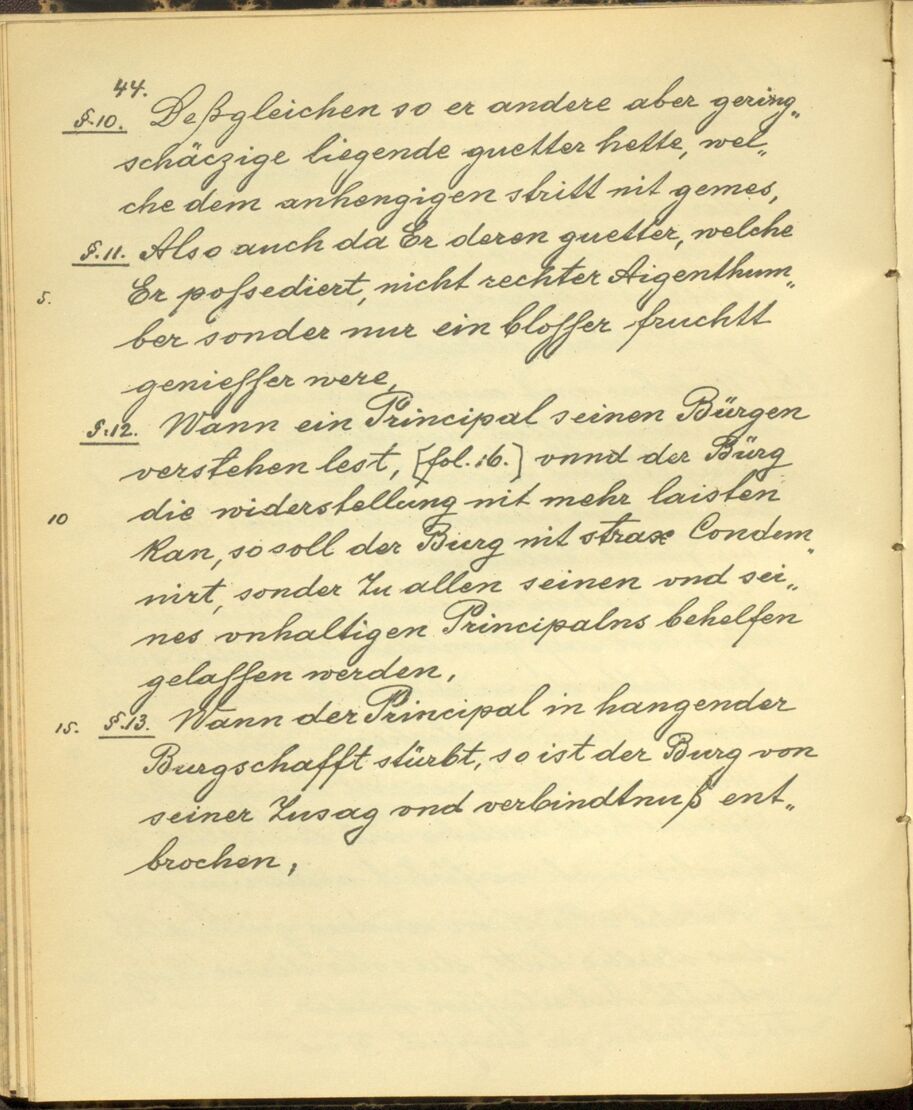 44.
§.10. Deßgleichen so er andere aber gering„
schäczige liegende guetter hette, wel„
che dem anhengigen stritt nit gemes,
§.11. Also auch da Er deren guetter, welche
5. Er possediert, nicht rechter Aigenthum„
ber sonder nur ein blosser fruchtt
geniesser were,
§.12. Wann ein Principal seinen Bürgen
verstehen lest, [fol. 16.] vnnd der Bürg
10 die widerstellung nit mehr laisten
kan, so soll der Burg nit strax Condem„
nirt, sonder Zu allen seinen vnd sei„
nes vnhaltigen Principalns behelfen
gelassen werden,
15. §.13. Wann der Principal in hangender
Burgschafft stürbt, so ist der Burg von
seiner Zusag vnd verbindtnuß ent„
brochen,